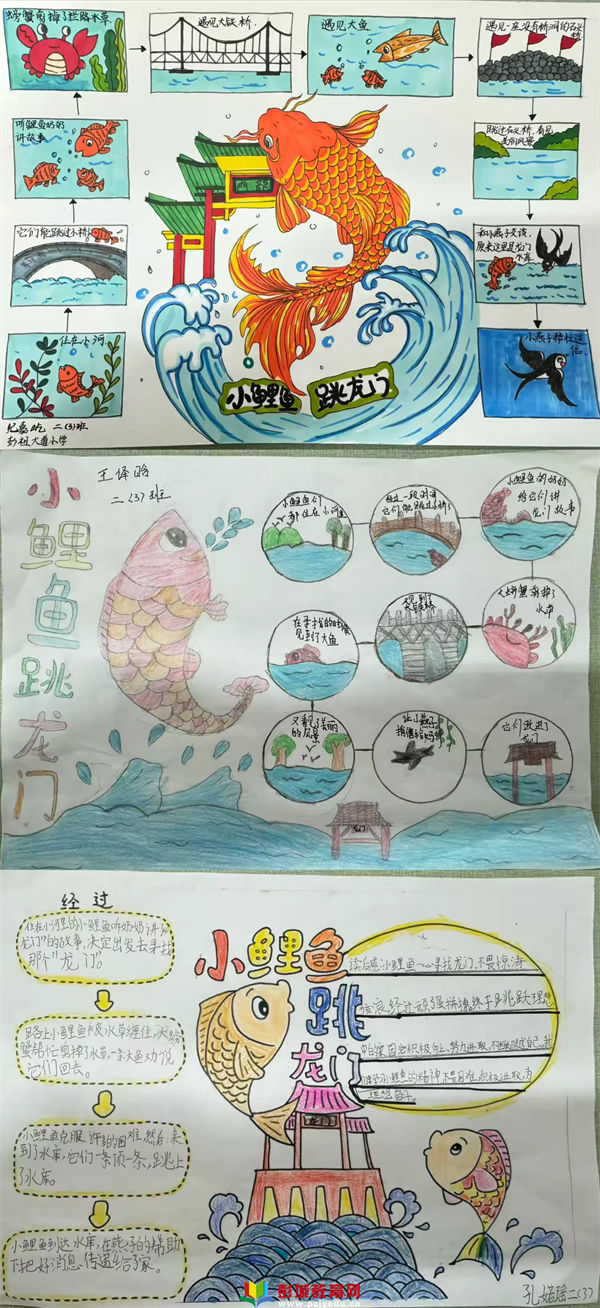 螃蟹剪掉了拦路水草
遇见大铁桥.
遇见大鱼
遇见一座没有桥洞的石头
听鲤鱼奶奶
讲故事
跳过石头桥,看见
美丽风景
它们能跳过小桥
和小燕子交谈,
原来这里是龙门
水库.
住在小河
小燕子帮忙送
信.
小鲤鱼 跳龙门
二(3)班
彭祖大道小学
小鲤鱼跳龙门
王
二(3)班
小鲤鱼们
都住在小河里
经过一段时间
它们能跳过小桥了
小鲤鱼的奶奶
给它们讲
龙门故事
大螃蟹剪掉了
水草
在寻找的时候
见到了大鱼
又看见了美丽
的风景
让小燕子
捎信给奶奶
它们跃进了
龙门
龙门
经过
住在小河里的小鲤鱼听奶奶讲了
龙门"的故事,决定出发去寻找
那个"龙门"。
路上小鲤鱼不小心被水草缠住,大螃
蟹帮忙剪掉了水草,一条大鱼劝说
它们回去。
小鲤鱼克服许多困难,然后,来
到了水库,它们一条顶一条,跳上
了水库。
小鲤鱼到达水库,在燕子的帮助
下把好消息传递给了家。
小鲤鱼
跳
龙门
读后感:小鲤鱼一心寻找龙门,不畏惊涛
骇浪,经过顽强拼搏,终于跳跃理想
积极向上,努力进取,不断超越自己,我
们要学习小鲤鱼的精神,不畏困难,积极进取,为
理想奋斗
龙门
彭城教育网
www.pcjyedu.cn
孔婼瑶二(3)